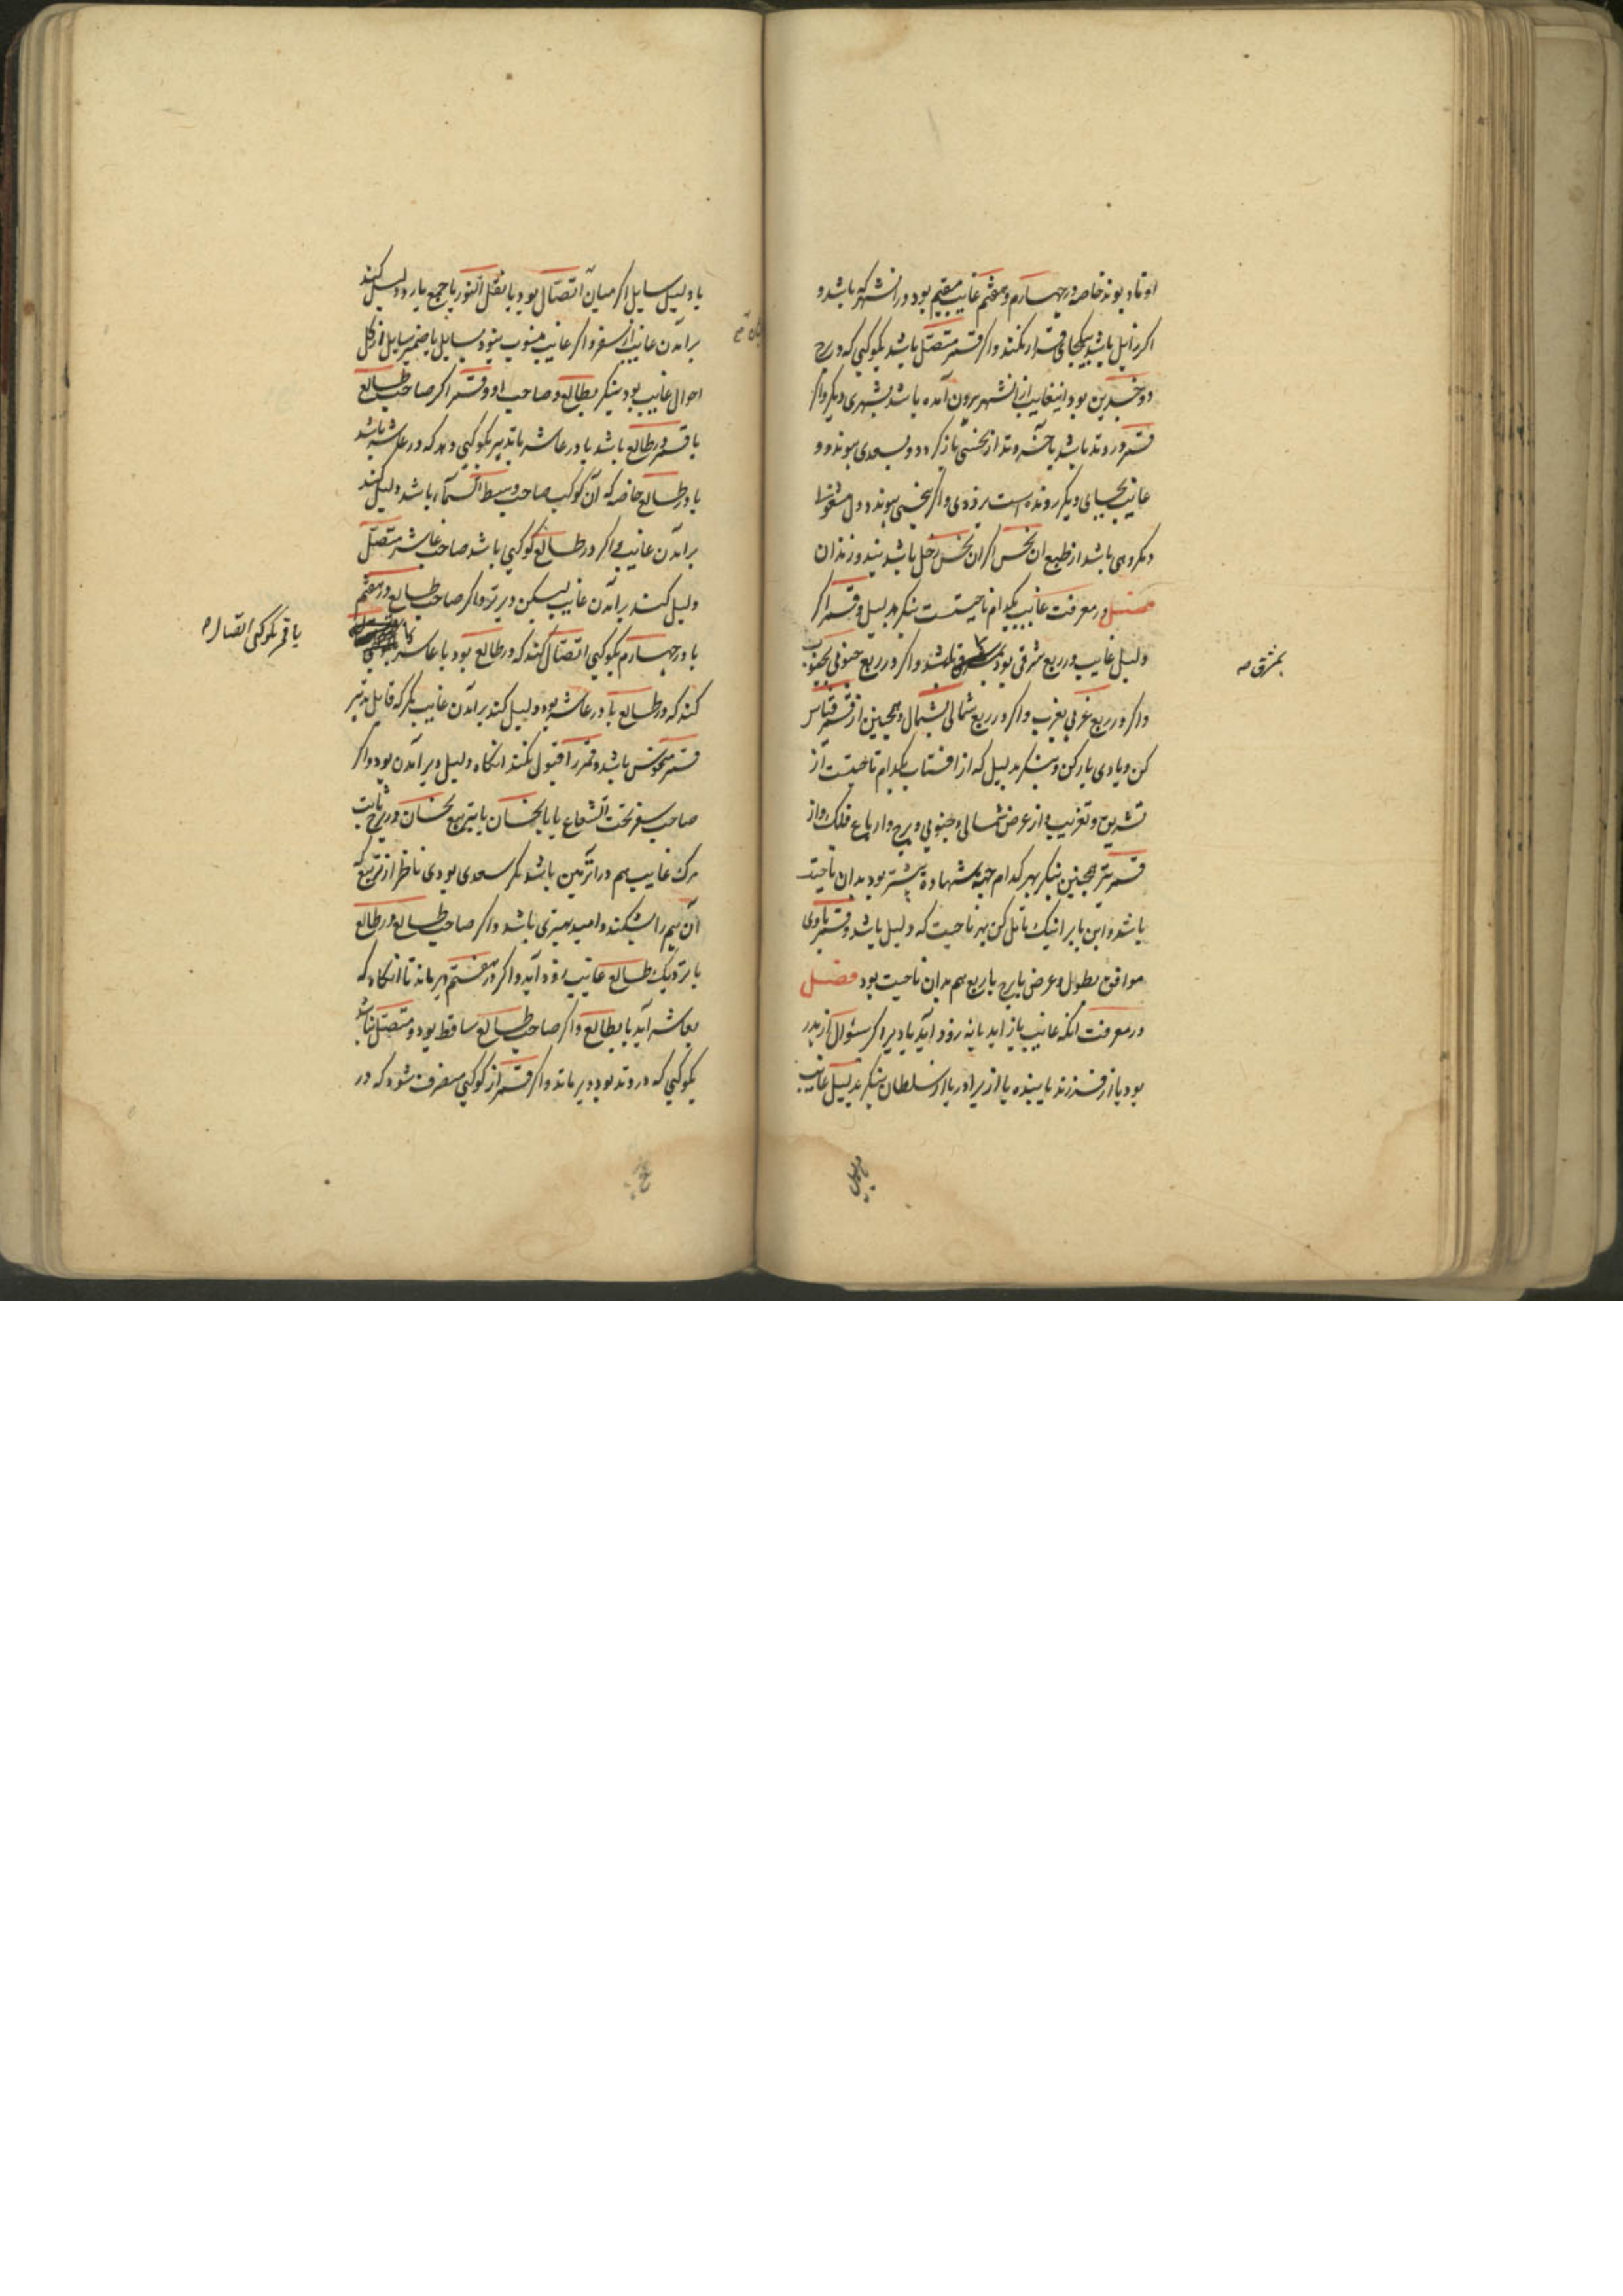 اوتاد بوند خاصه در چهارم و هفتم غایب مقیم بود در ان شهر که باشد و
اکر زایل باشد بیکجای قرار نکند واکر قمر متصل باشد بکوکبی که در برج
دو جسدین بود این غایب از ان شهر بیرون آمده باشد بشهری دیکر واکر
قمر در وتد باشد یا جز وتد از نحسی باز کردد و بسعدی پیوندد و
غایب بجای دیکر رونده است بزودی واکر بنحسی پیوندد دل مشغول
و مکروهی باشد از طبع ان نحس اکر ان نحس زحل باشد بند و زندان
فصل در معرفت غایب بکدام ناحیتست بنکر بدلیل و قمر اکر
دلیل غایب در ربع شرقی بود باشد واکر در ربع جنوبی بجنوب
بمشرق صح
واکر در ربع غربی بغرب واکر در ربع شمالی بشمال و همچنین از قمر قیاس
کن و یادی یار کن و بنکر بدلیل که از افتاب بکدام ناحیتست از
تشریق و تغریب و از عرض شمالی و جنوبی و برج و ارباع فلک و از
قمر نیز همچنین بنکر بهر کدام جهة شهادة بیشتر بود بدان ناحیت
باشد و این باب را نیک تامل کن بهر ناحیت که دلیل باشد و قمر باوی
موافق بطول و عرض یا برج یا ربع هم بدان ناحیت بود فصل
در معرفت انکه غایب باز اید یا نه زود آید یا دیر اکر سئوال از پدر
بود یا از فرزند یا بنده یا از برادر یا از سلطان بنکر بدلیل غایب
یا دلیل سایل اکر میان اتصال بود یا نقل النور یا جمع یا رد دلیل کند
برامدن غایب از سفر واکر غایب منسوب نبود بسایل یا ضمیر سایل از کل
احوال غایب بود بنکر بطالع و صاحب او و قمر اکر صاحب طالع
یا قمر در طالع باشد یا در عاشر یا تدبیر بکوکبی دهد که در عاشر باشد
یا در طالع خاصه که آن کوکب صاحب وسط السماء باشد دلیل کند
برامدن غایب واکر در طالع کوکبی باشد صاحب عاشر متصل
دلیل کند برامدن غایب لیکن دیرتر واکر صاحب طالع در هفتم
یا در چهارم بکوکبی اتصال کند که در طالع بود یا عاشر
یا قمر بکوکبی اتصال
کند که در طالع یا در عاشر بود دلیل کند برامدن غایب مکر که قابل تدبیر
قمر منحوس باشد و قمر را قبول نکند انکاه دلیل دیر آمدن بود واکر
صاحب سفر تحت الشعاع یا با نحسان یا بتربیع نحسان در برج ثابت
مرک غایب بیم در آن زمین باشد مکر سعدی بوی ناظر از تربیع که
آن بیم را بشکند و امید بهتری باشد واکر صاحب طالع در طالع
یا نزدیک طالع غایب زود آید واکر در هفتم دیر ماند تا انکاه که
بعاشر آید یا بطالع واکر صاحب طالع ساقط بود و متصل نباشد
بکوکبی که در وتد بود دیر ماند واکر قمر از کوکبی منصرف شود که در